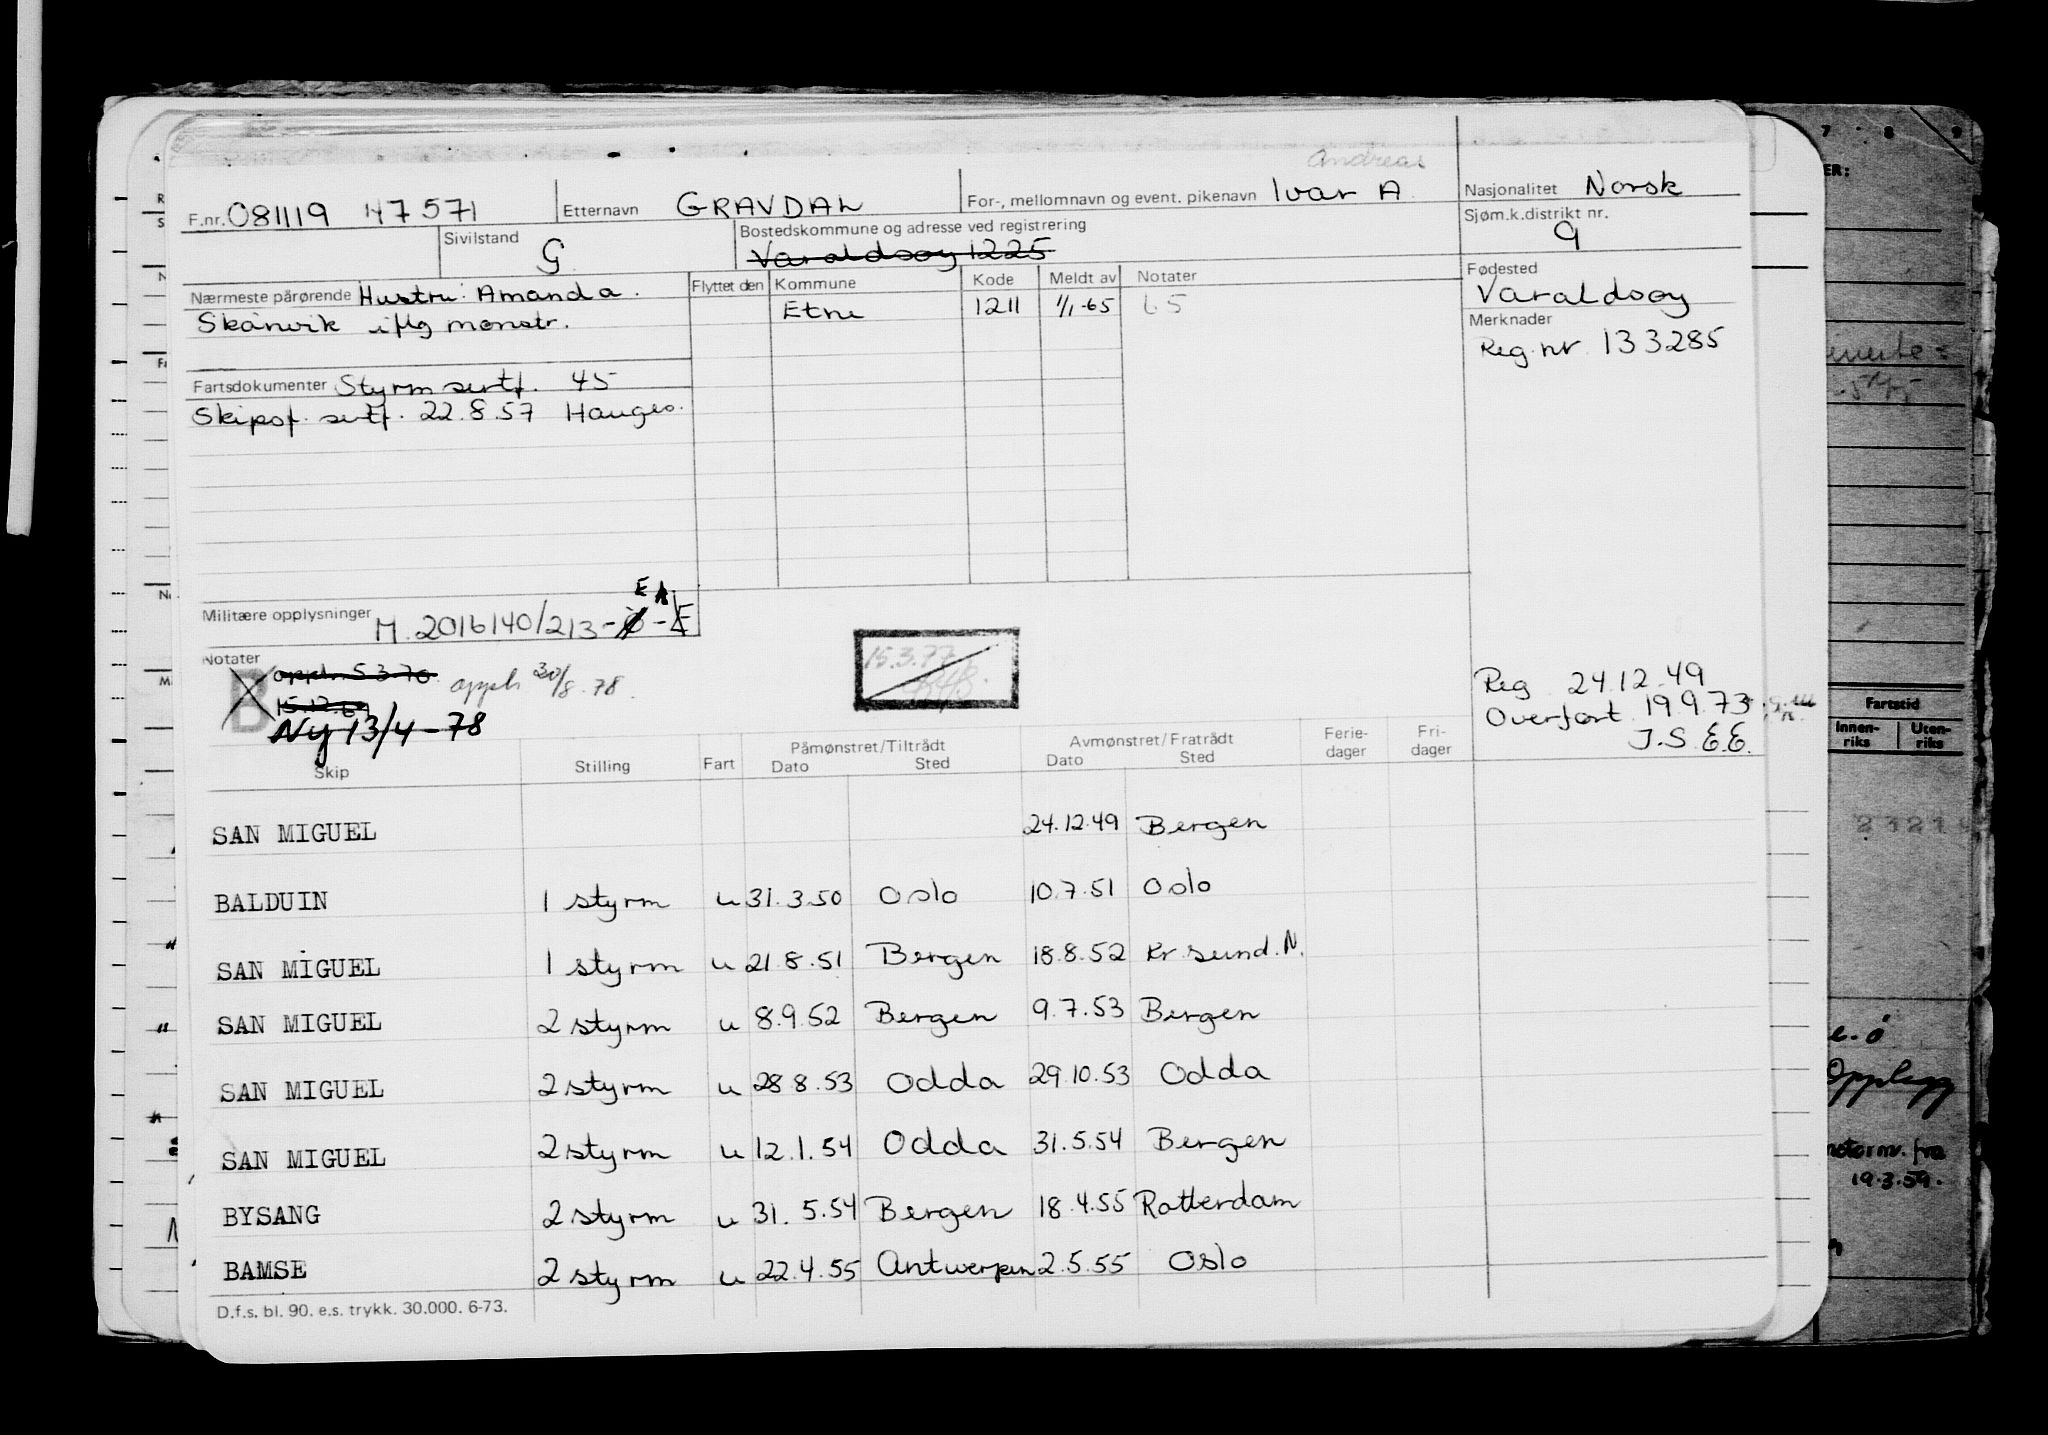 Andreas
F.nr. 081119 47571 Etternavn GRAVDAL For-, mellomnavn og event. pikenavn Ivar A. Nasjonalitet Norsk
Sivilstand G Bostedskommune og adresse ved registrering Varaldsøy 1225 Sjøm.k.distrikt nr. 9
Nærmeste pårørende Hustru: Amanda.
Skånvik iflg mønstr.
Flyttet den Kommune Kode Meldt av Notater
Etne 1211 1/1-65 65
Fødested
Varaldsøy
Merknader
Reg. nr. 133285
Fartsdokumenter Styrm sertf. 45
Skipsf. sertf. 22.8.57 Hauges.
Militære opplysninger M. 2016140/213-Ø-E
E A
Notater
B
oppl. 5.3.70
15.12.69
oppl. 30/8.78.
Ny 13/4-78
15.3.77
Reg 24.12.49
Overført 19.9.73
J.S. E.E.
Skip Stilling Fart Påmønstret/Tiltrådt Dato Sted Avmønstret/Fratrådt Dato Sted Ferie-dager Fri-dager
SAN MIGUEL 24.12.49 Bergen
BALDUIN 1 styrm u 31.3.50 Oslo 10.7.51 Oslo
SAN MIGUEL 1 styrm u 21.8.51 Bergen 18.8.52 Kr.sund.N.
SAN MIGUEL 2 styrm u 8.9.52 Bergen 9.7.53 Bergen
SAN MIGUEL 2 styrm u 28.8.53 Odda 29.10.53 Odda
SAN MIGUEL 2 styrm u 12.1.54 Odda 31.5.54 Bergen
BYSANG 2 styrm u 31.5.54 Bergen 18.4.55 Rotterdam
BAMSE 2 styrm u 22.4.55 Antwerpen 2.5.55 Oslo
D.f.s. bl. 90. e.s. trykk. 30.000. 6-73.
7 8 9
ER:
Fartstid
Innen-riks Uten-riks
Opplegg
fra
19.3.59.